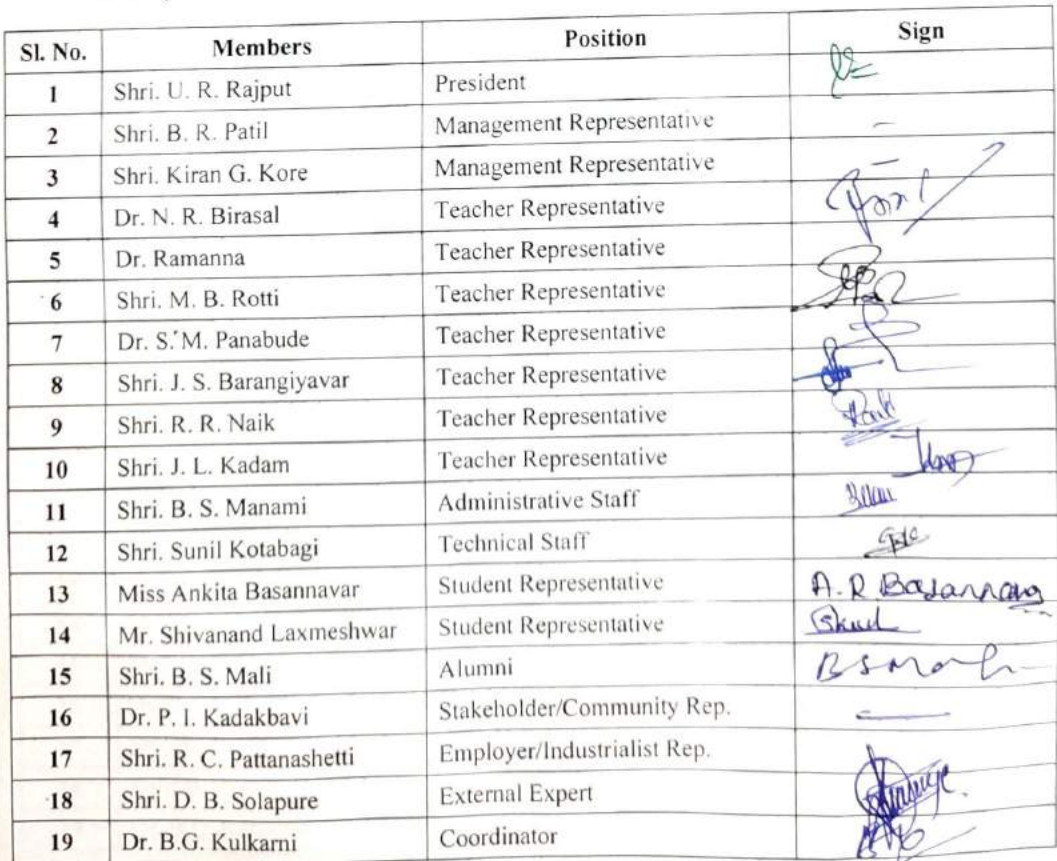 Sl. No. Members Position Sign
1 Shri. U. R. Rajput President
2 Shri. B. R. Patil Management Representative -
3 Shri. Kiran G. Kore Management Representative -
4 Dr. N. R. Birasal Teacher Representative
5 Dr. Ramanna Teacher Representative
6 Shri. M. B. Rotti Teacher Representative
7 Dr. S. M. Panabude Teacher Representative
8 Shri. J. S. Barangiyavar Teacher Representative
9 Shri. R. R. Naik Teacher Representative
10 Shri. J. L. Kadam Teacher Representative
11 Shri. B. S. Manami Administrative Staff
12 Shri. Sunil Kotabagi Technical Staff
13 Miss Ankita Basannavar Student Representative A. R Basannavar
14 Mr. Shivanand Laxmeshwar Student Representative
15 Shri. B. S. Mali Alumni
16 Dr. P. I. Kadakbavi Stakeholder/Community Rep. -
17 Shri. R. C. Pattanashetti Employer/Industrialist Rep.
18 Shri. D. B. Solapure External Expert
19 Dr. B.G. Kulkarni Coordinator